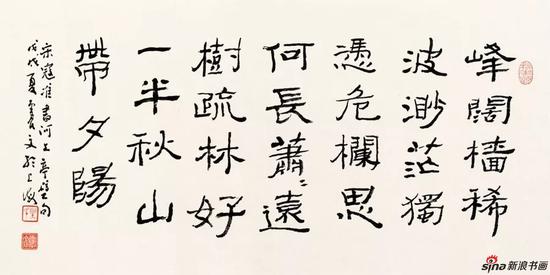 峰闊檣稀
波渺茫獨
憑危欄思
何長蕭〻遠
樹疏林好
一半秋山
帶夕陽
宋寇准書河上亭壁句
戊戌夏 文於上海
sina新浪书画